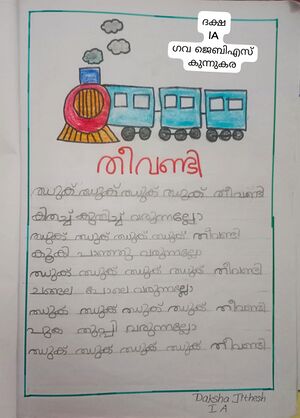 ദക്ഷ
IA
ഗവ ജെബിഎസ്
കുന്നുകര
തീവണ്ടി
ഝുക് ഝുക് ഝുക് ഝുക് തീവണ്ടി
കിതച്ച് കുതിച്ച് വരുന്നല്ലോ
ഝുക് ഝുക് ഝുക് ഝുക് തീവണ്ടി
കൂകി പാഞ്ഞു വരുന്നല്ലോ
ഝുക് ഝുക് ഝുക് ഝുക് തീവണ്ടി
ചങ്ങല പോലെ വരുന്നല്ലോ
ഝുക് ഝുക് ഝുക് ഝുക് തീവണ്ടി
പുക തുപ്പി വരുന്നല്ലോ
ഝുക് ഝുക് ഝുക് ഝുക് തീവണ്ടി
Daksha Jithesh
I A